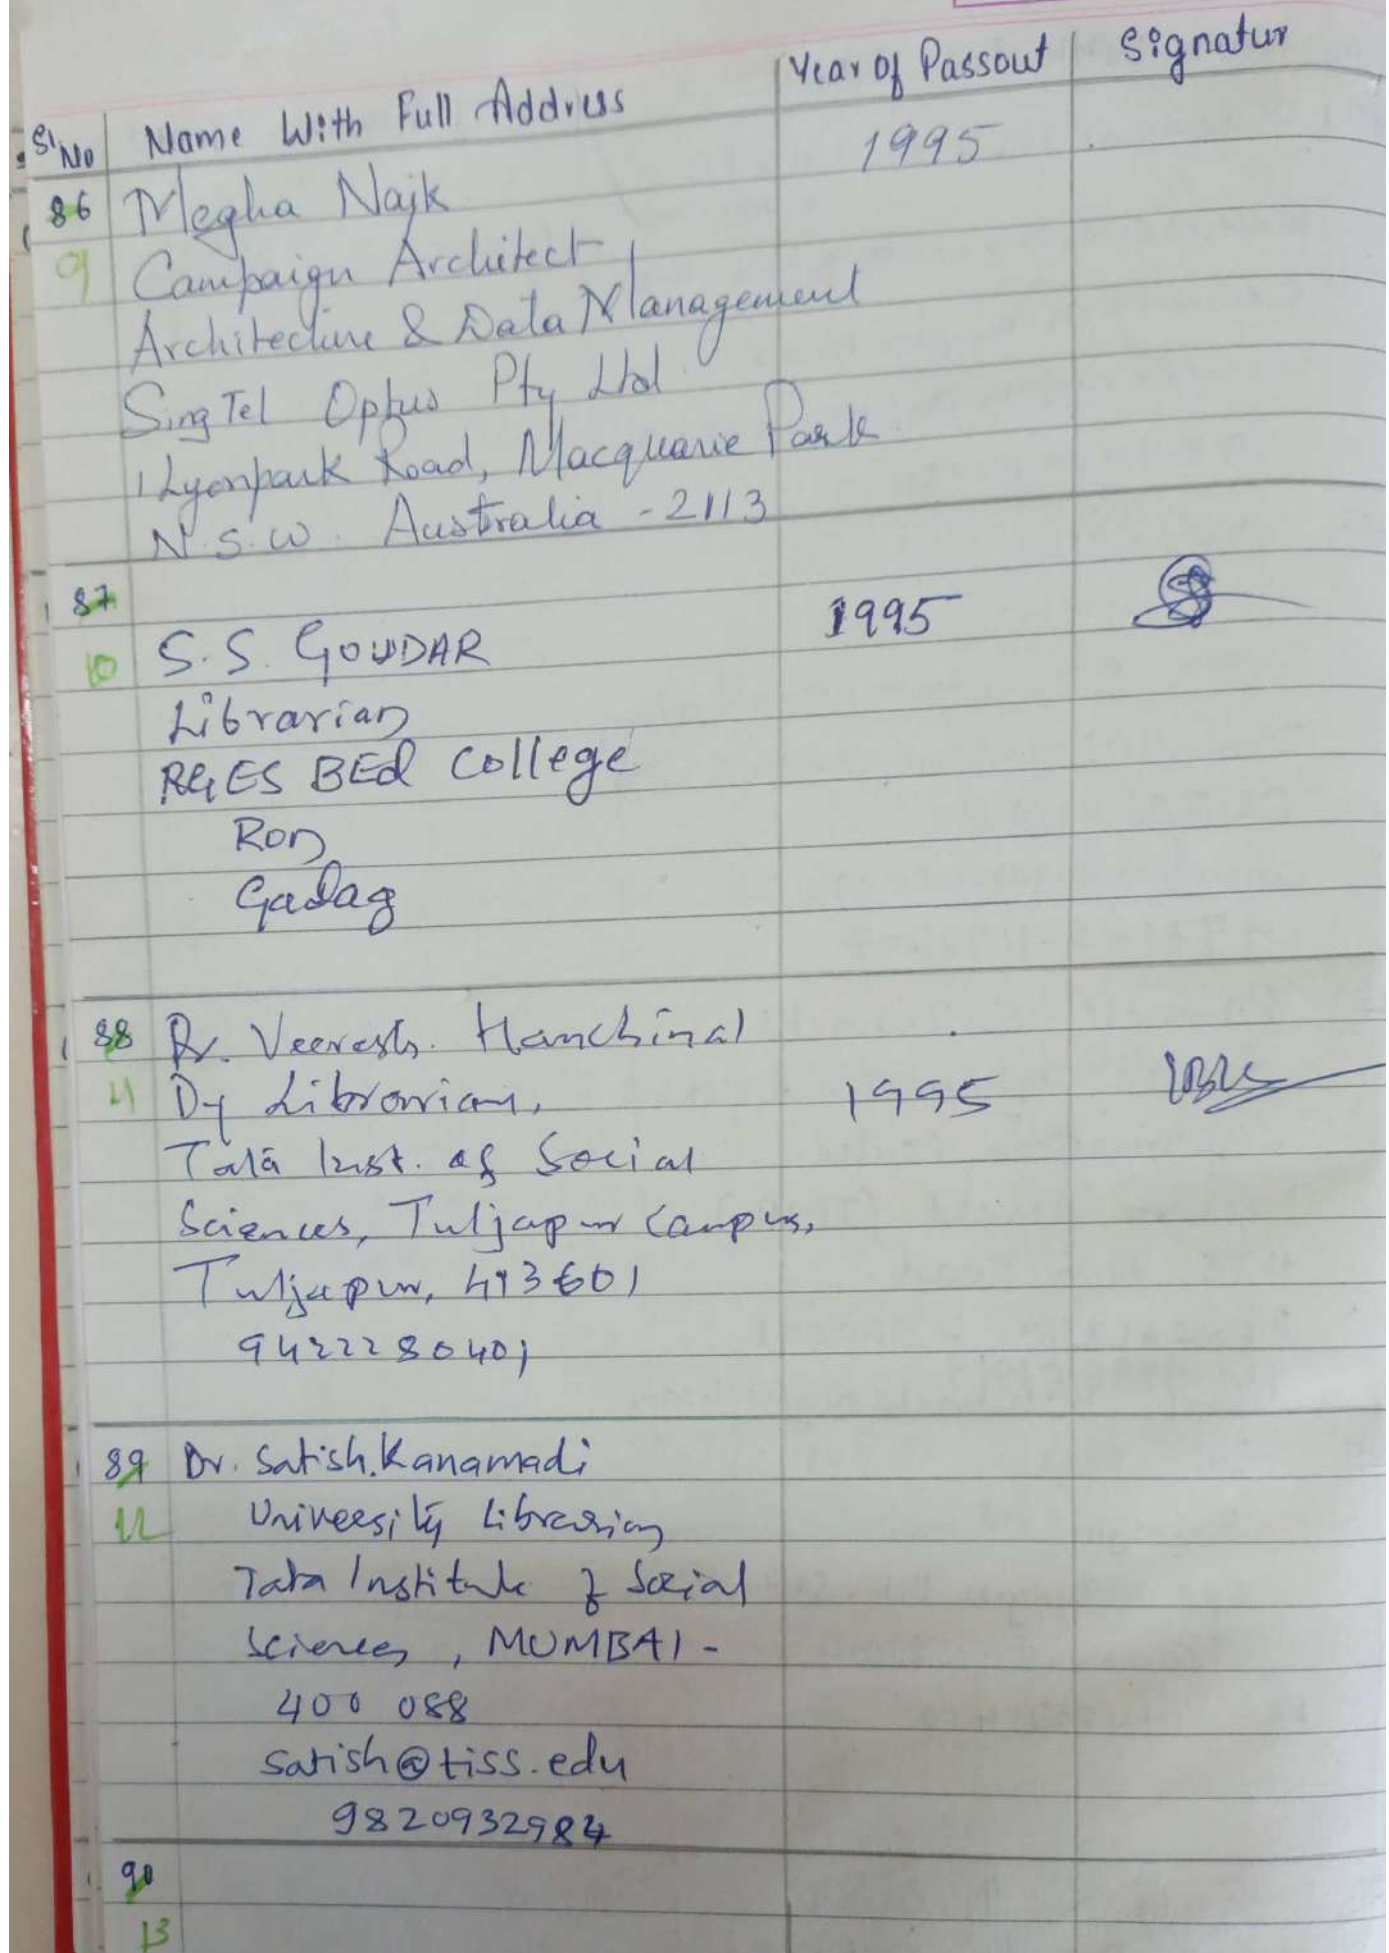 Sl No Name With Full Address Year of Passout Signatur
86 Megha Naik 1995
9 Campaign Architect
Architecture & Data Management
SingTel Optus Pty Ltd
1 Lyonpark Road, Macquarie Park
N.S.W. Australia - 2113
87
10 S. S. GOUDAR 1995
Librarian
RGES BEd College
Ron
Gadag
88 Dr. Veeresh. Hanchinal
11 Dy Librarian, 1995
Tata Inst. of Social
Sciences, Tuljapur Campus,
Tuljapur, 413601
9422280401
89 Dr. Satish.Kanamadi
12 University Librarian
Tata Institute of Social
Sciences, MUMBAI -
400 088
satish@tiss.edu
9820932984
90
13